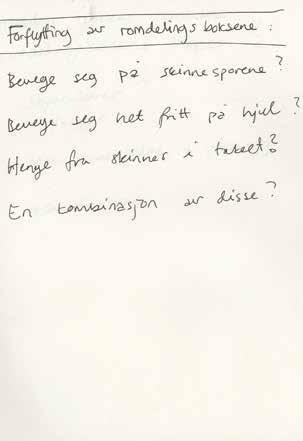 Forflytting av romdelings boksene :
Bevege seg på skinnesporene ?
Bevege seg helt fritt på hjul ?
Henge fra skinner i taket ?
En kombinasjon av disse ?